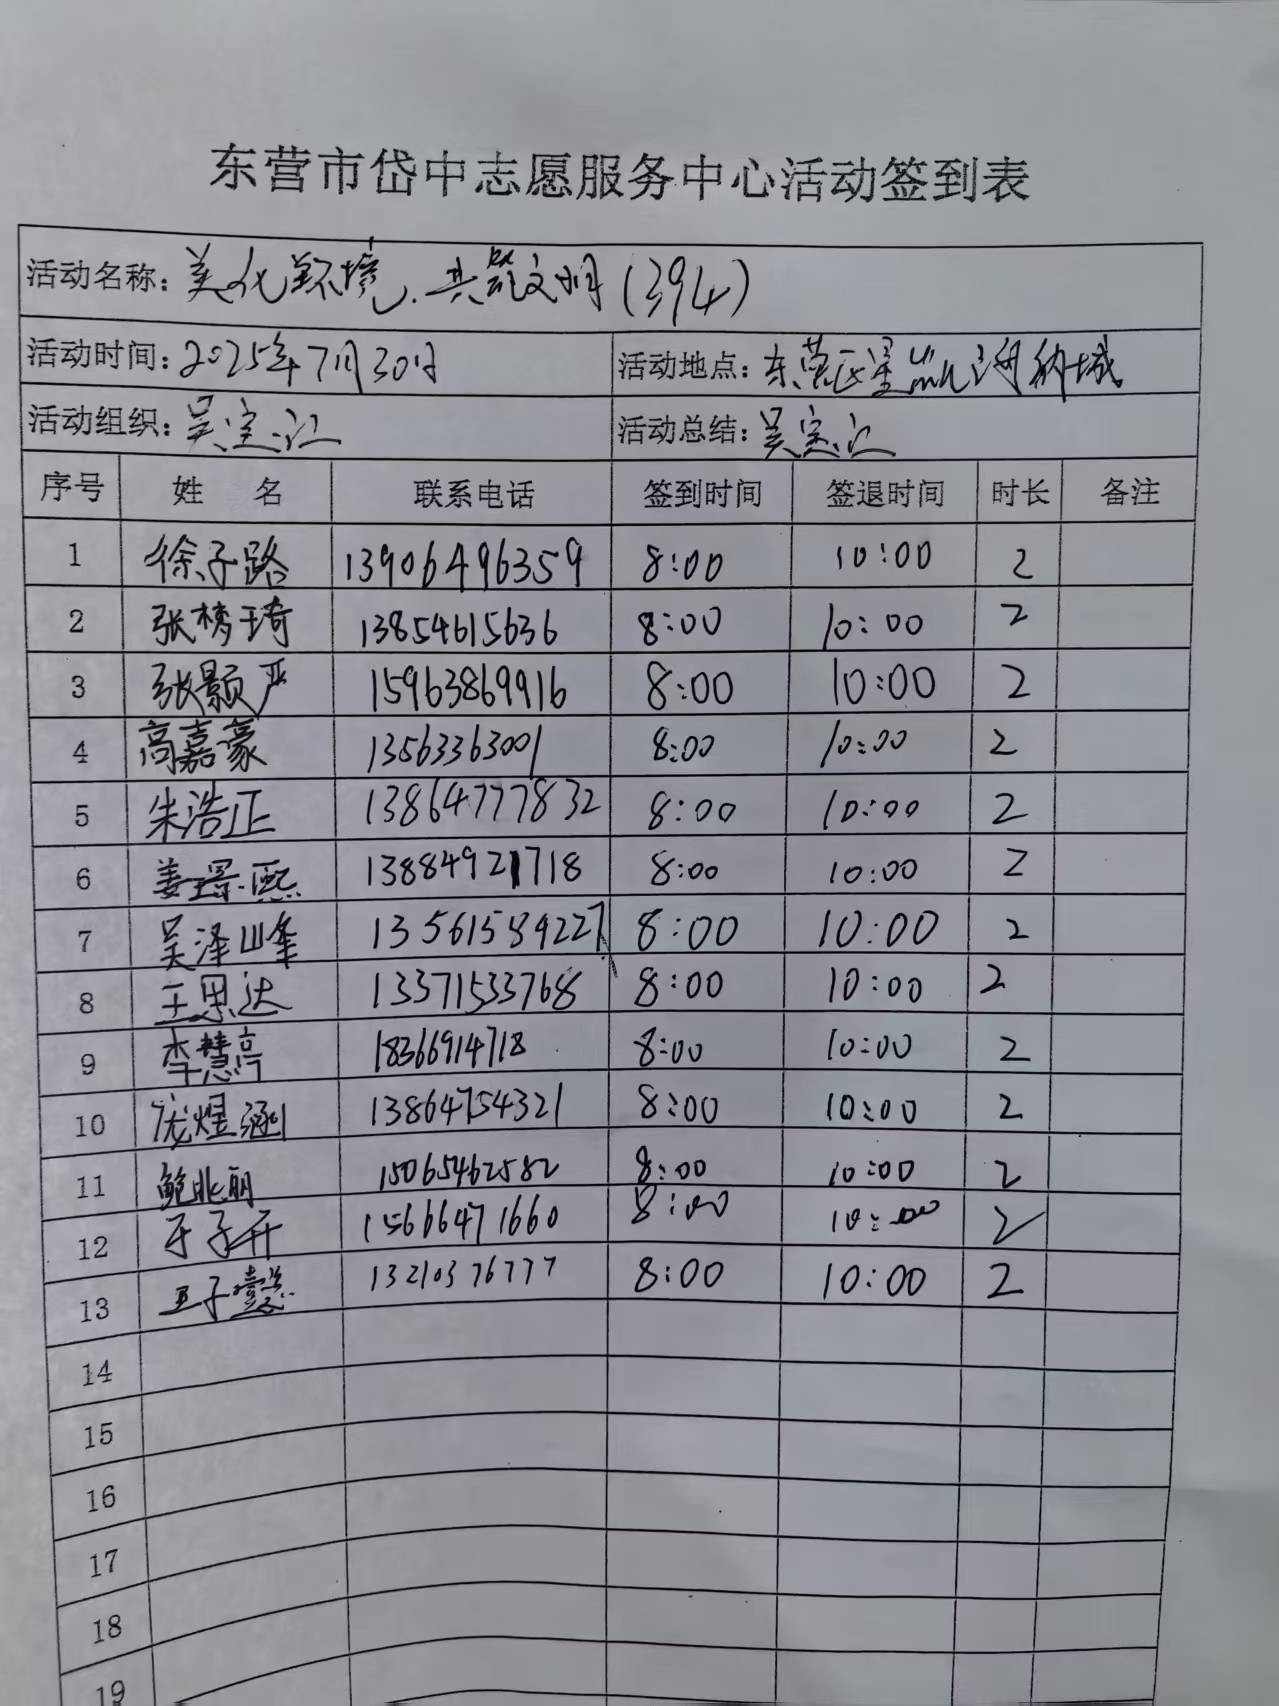 东营市岱中志愿服务中心活动签到表
活动名称：美化环境，共筑文明（394）
活动时间：2025年7月30日 活动地点：东营区星凯 城
活动组织：吴宝江 活动总结：吴宝江
序号 姓 名 联系电话 签到时间 签退时间 时长 备注
1 徐子路 13906496359 8:00 10:00 2
2 张梦琦 13854615636 8:00 10:00 2
3 张颢严 15963869916 8:00 10:00 2
4 高嘉豪 13563363001 8:00 10:00 2
5 朱浩正 13864777832 8:00 10:00 2
6 姜璟熙 13884921718 8:00 10:00 2
7 吴泽峰 13561584227 8:00 10:00 2
8 王思达 13371533768 8:00 10:00 2
9 李慧亭 18366914718 8:00 10:00 2
10 庞煜涵 13864754321 8:00 10:00 2
11 鲍兆丽 15065462582 8:00 10:00 2
12 于子开 15666471660 8:00 10:00 2
13 王子懿 13210376777 8:00 10:00 2
14
15
16
17
18
19